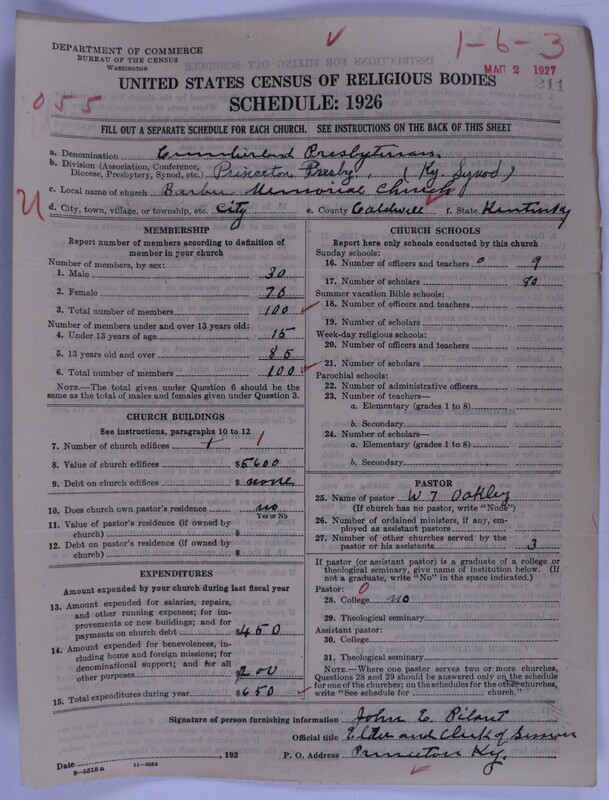 DEPARTMENT OF COMMERCE
BUREAU OF THE CENSUS
WASHINGTON
1-6-3
MAR 2 1927
211
055
UNITED STATES CENSUS OF RELIGIOUS BODIES
SCHEDULE: 1926
FILL OUT A SEPARATE SCHEDULE FOR EACH CHURCH. SEE INSTRUCTIONS ON THE BACK OF THIS SHEET
a. Denomination Cumberland Presbyterian.
b. Division (Association, Conference, Diocese, Presbytery, Synod, etc.) Princeton Presby. (Ky. Synod)
c. Local name of church Barbee Memorial Church
U
d. City, town, village, or township, etc. City e. County Caldwell f. State Kentucky
MEMBERSHIP
Report number of members according to definition of member in your church
Number of members, by sex:
1. Male 30
2. Female 70
3. Total number of members 100
Number of members under and over 13 years old:
4. Under 13 years of age 15
5. 13 years old and over 85
6. Total number of members 100
NOTE.—The total given under Question 6 should be
same as the total of males and females given under Question 3.
CHURCH BUILDINGS
See instructions, paragraphs 10 to 12
7. Number of church edifices 1 1
8. Value of church edifices $5600
9. Debt on church edifices $ none
10. Does church own pastor's residence no
Yes or No
11. Value of pastor's residence (if owned by
church) $
12. Debt on pastor's residence (if owned by
church) $
EXPENDITURES
Amount expended by your church during last fiscal year
13. Amount expended for salaries, repairs,
and other running expenses; for im-
provements or new buildings; and for
payments on church debt $450
14. Amount expended for benevolences, in-
cluding home and foreign missions; for
denominational support; and for all
other purposes $200
15. Total expenditures during year $650
CHURCH SCHOOLS
Report here only schools conducted by this church
Sunday schools:
16. Number of officers and teachers 9
17. Number of scholars 80
Summer vacation Bible schools:
18. Number of officers and teachers
19. Number of scholars
Week-day religious schools:
20. Number of officers and teachers
21. Number of scholars
Parochial schools:
22. Number of administrative officers
23. Number of teachers—
a. Elementary (grades 1 to 8)
b. Secondary
24. Number of scholars—
a. Elementary (grades 1 to 8)
b. Secondary
PASTOR
25. Name of pastor W T Oakley
(If church has no pastor, write "None")
26. Number of ordained ministers, if any, em-
ployed as assistant pastors
27. Number of other churches served by the
pastor or his assistants 3
If pastor (or assistant pastor) is a graduate of a college or
theological seminary, give name of institution below. (If
not a graduate, write "No" in the space indicated.)
Pastor: 0
28. College no
29. Theological seminary
Assistant pastor:
30. College
31. Theological seminary
NOTE.—Where one pastor serves two or more churches,
Questions 28 and 29 should be answered only on the schedule
for one of the churches; on the schedules for the other churches,
write "See schedule for church."
Signature of person furnishing information John E. Pilant
Official title Elder and Clerk of Session
Date , 192 P. O. Address Princeton Ky.
8-5518a 11-9064